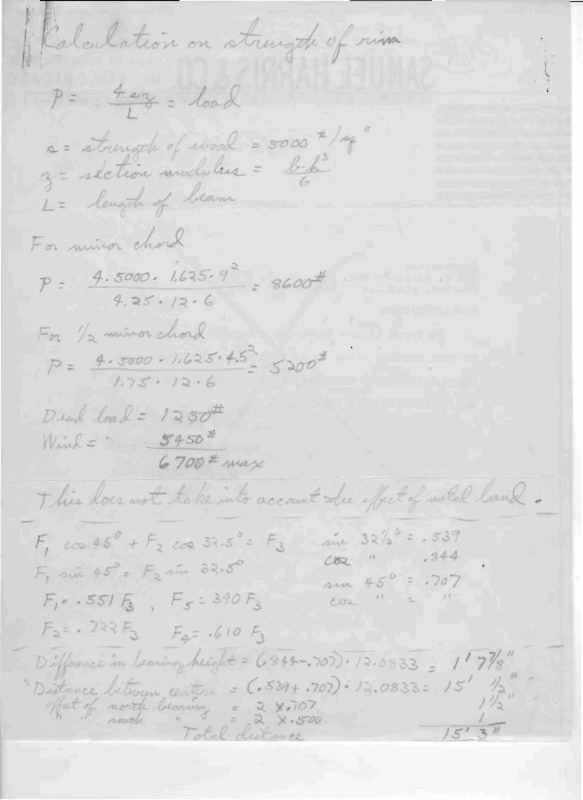 Calculation on strength of rim
SAMUEL HARRIS & CO.
P = 4sz/L = load
s = strength of wood = 5000 #/sq "
z = section modulus = b·h³/6
L = length of beam
For minor chord
P = 4·5000·1.625·9²/4.25·12·6 = 8600#
For 1/2 minor chord
P = 4·5000·1.625·4.5²/1.75·12·6 = 5200#
Dead load = 1250#
Wind = 5450#
6700# max
This does not take into account the effect of metal band.
F₁ cos 45° + F₂ cos 32.5° = F₃ sin 32½° = .539
cos " .844
F₁ sin 45° = F₂ sin 32.5° sin 45° = .707
F₁ = .551 F₃, F₅ = 390 F₃ cos " = "
F₂ = .722 F₃ F₄ = .610 F₃
Difference in bearing height = (.844-.707)·12.0833 = 1' 7⅞"
Distance between centers = (.539+.707)·12.0833 = 15' ½"
effect of north bearing = 2 x .707 1½"
" " south " = 2 x .500 1
Total distance 15' 3"